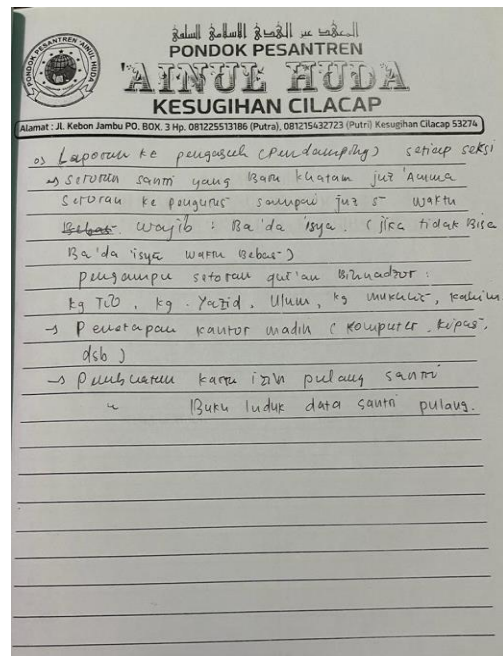 PONDOK PESANTREN 'AINUL HUDA
PONDOK PESANTREN
'AINUL HUDA
KESUGIHAN CILACAP
Alamat : Jl. Kebon Jambu PO. BOX. 3 Hp. 081225513186 (Putra), 081215432723 (Putri) Kesugihan Cilacap 53274
Laporan ke pengasuh (Pendamping) setiap seksi
→ Setoran santri yang Baru khatam juz 'Amma
Setoran ke pengurus sampai juz 5 waktu
Bebas wajib : Ba'da isya. (jika tidak Bisa
Ba'da isya waktu Bebas)
pengampu setoran qur'an Binnadzor :
kg . Yazid, Ulum, kg mukhlis,
→ Penetapan kantor madin (Komputer, kipas,
dsb)
→ Pembuatan kartu izin pulang santri
" Buku Induk data santri pulang.